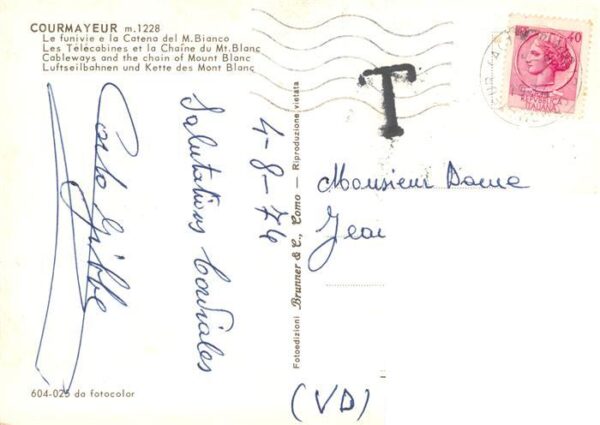 COURMAYEUR m. 1228
Le funivie e la Catena del M. Bianco
Les Télécabines et la Chaîne du Mt. Blanc
Cableways and the chain of Mount Blanc
Luftseilbahnen und Kette des Mont Blanc
40
REPUBBLICA
ITALIANA
T
4-8-74
Salutations Cordiales
Fotoedizioni Brunner & C., Como — Riproduzione vietata
Monsieur Dame
Jean
(VD)
604-025 da fotocolor